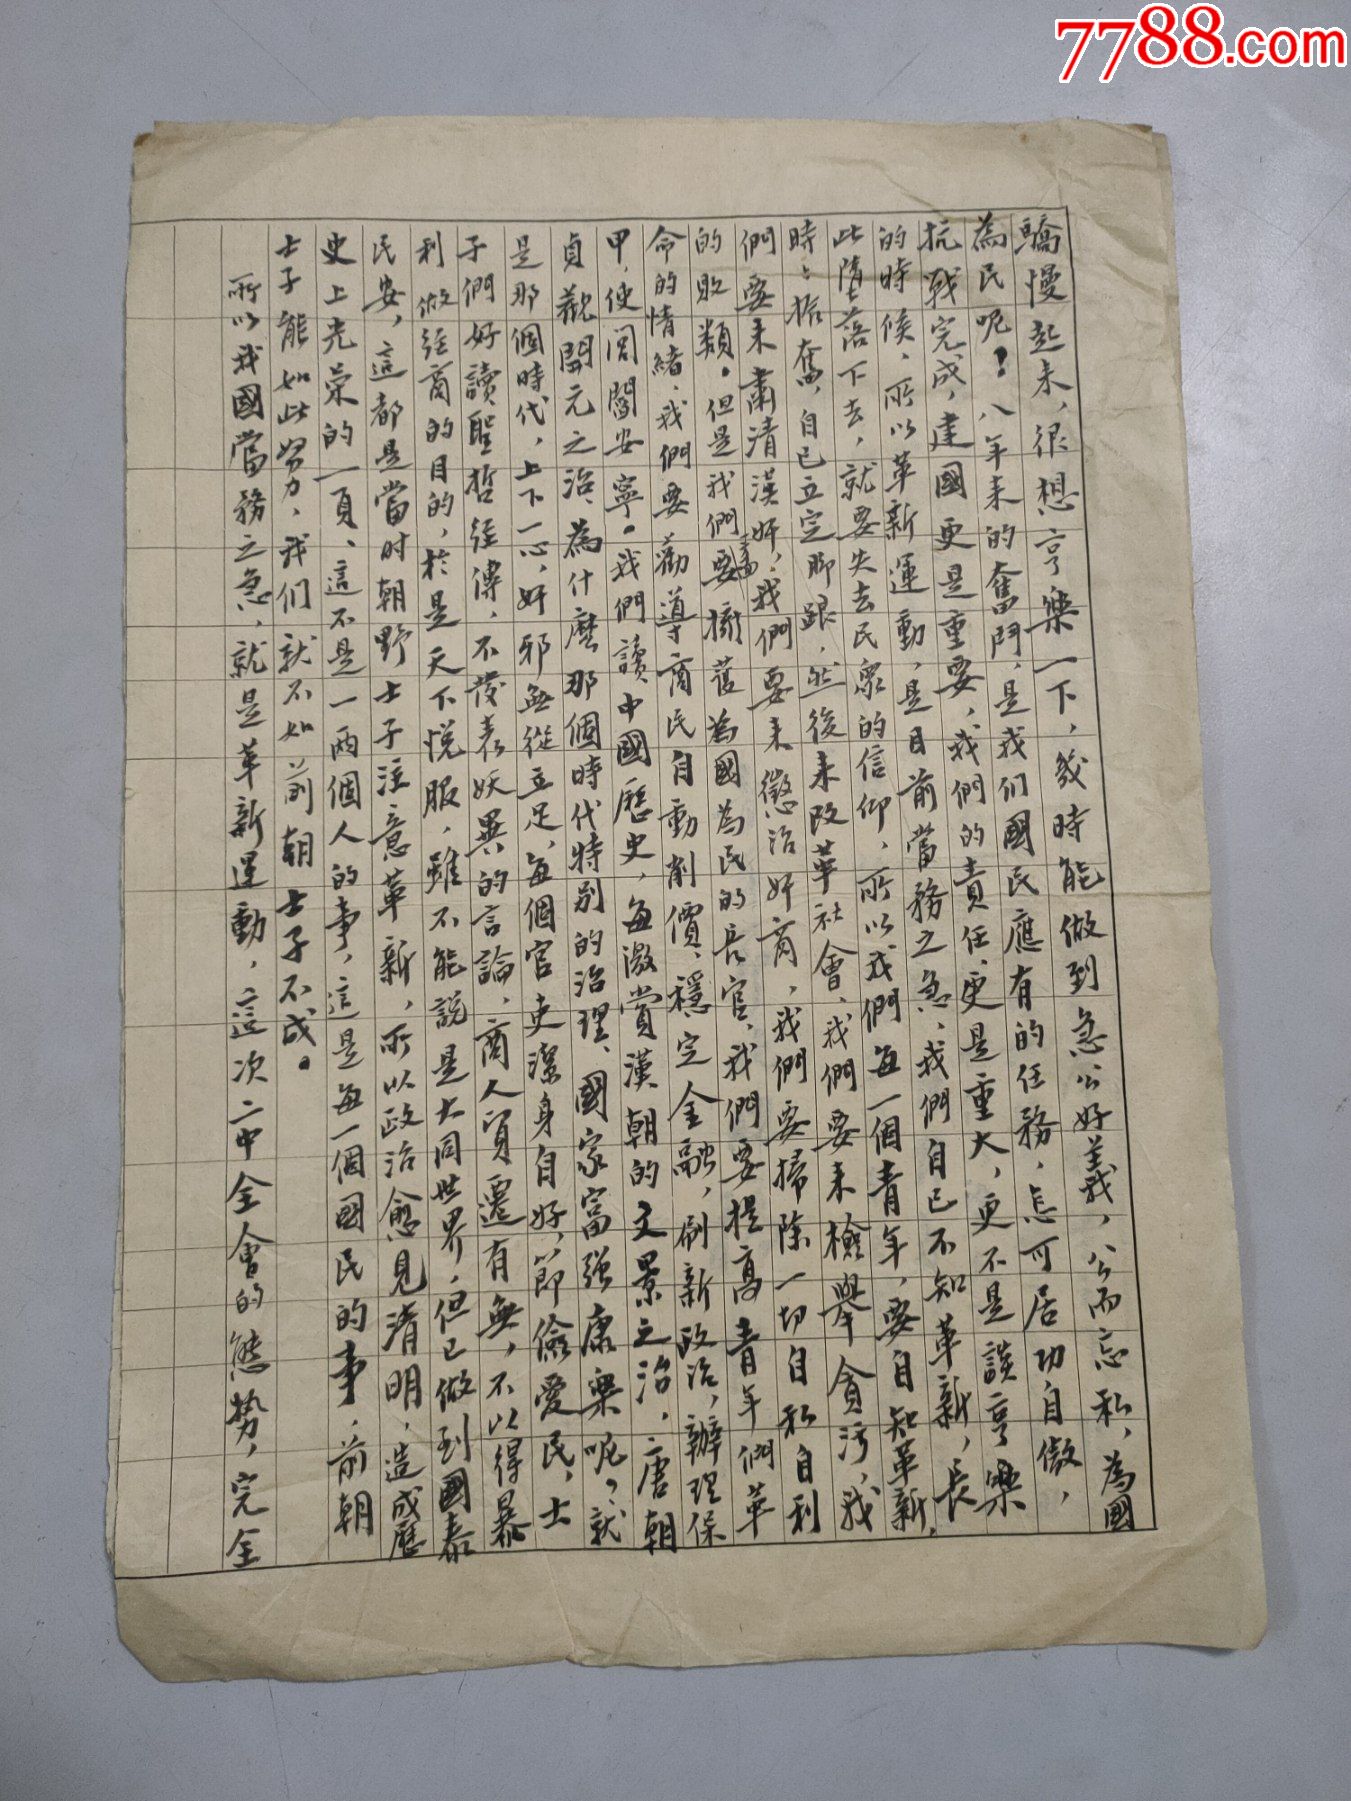 7788.com
驕慢起来，很想亨樂一下，幾時能做到急公好義，公而忘私，為國
為民呢？八年来的奮鬥，是我们國民應有的任務，怎可居功自傲，
抗戰完成，建國更是重要，我們的責任，更是重大，更不是談亨樂
的時候，所以革新運動，是目前當務之急，我們自己不知革新，長
此墮落下去，就要失去民衆的信仰，所以我們每一個青年，要自知革新，
時々振奮，自己立定脚跟，然後来改革社會，我們要来檢舉貪污，我
們要来肅清漢奸，我們要来懲治奸商，我們要掃除一切自私自利
的敗類。但是我們要擁護為國為民的長官，我們要提高青年們革
命的情緒，我們要勸導商民自動削價，穩定金融，刷新政治，辦理保
甲，使閭閻安寧。我們讀中國歷史，每激賞漢朝的文景之治，唐朝
貞觀開元之治，為什麼那個時代特别的治理，國家富强康樂呢？就
是那個時代，上下一心，奸邪無從立足，每個官吏潔身自好，節儉愛民，士
子們好讀聖哲经傳，不發表妖異的言論，商人貿遷有無，不以得暴
利做经商的目的，於是天下悦服，雖不能説是大同世界，但已做到國泰
民安，這都是當时朝野士子注意革新，所以政治愈見清明，造成歷
史上光荣的一頁，這不是一兩個人的事，這是每一個國民的事，前朝
士子能如此努力，我们就不如前朝士子不成。
所以我國當務之急，就是革新運動，這次二中全會的態势，完全